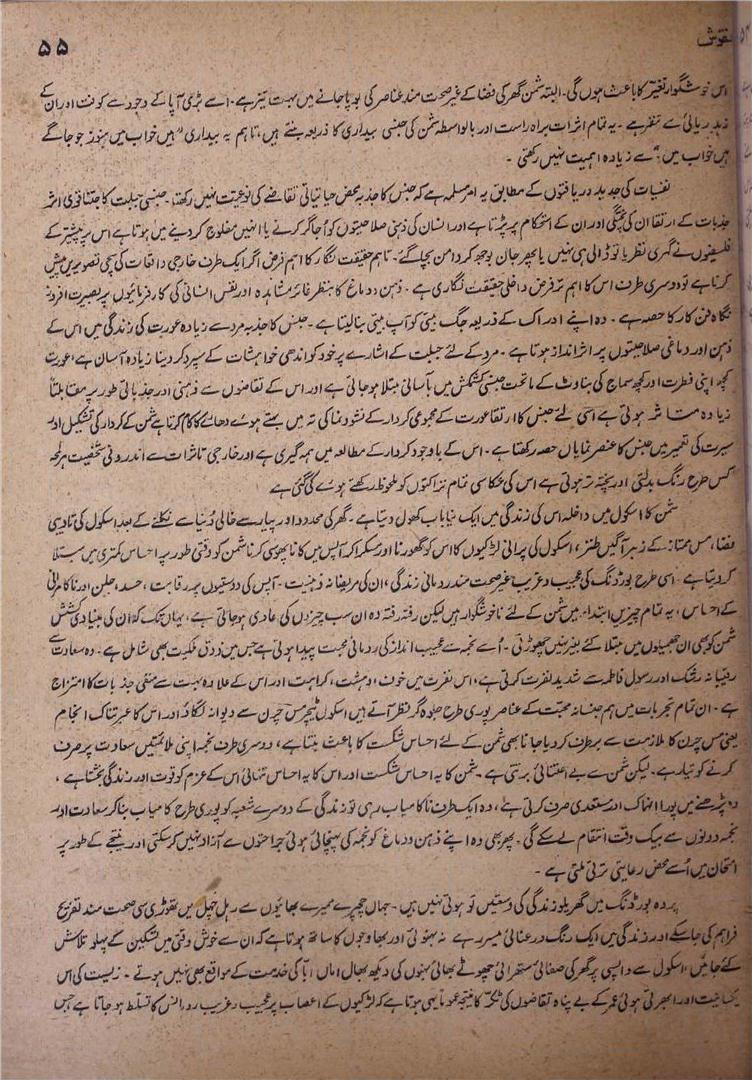 نقوش
۵۵
اس خوشگوار تغیّر کا باعث ہوں گی۔ البتہ شمن گھر کی فضا کے غیر صحت مند عناصر کی بو پا جانے میں بہت تیز ہے۔ اسے بڑی آپا کے وجود سے کوفت اور ان کے
زہد ریائی سے تنفر ہے۔ یہ تمام اثرات براہ راست اور بالواسطہ شمن کی جنسی بیداری کا ذریعہ بنتے ہیں، تاہم یہ بیداری "ہیں خواب میں ہنوز جو جاگے
ہیں خواب میں" سے زیادہ اہمیت نہیں رکھتی۔
نفسیات کی جدید دریافتوں کے مطابق یہ امر مسلمہ ہے کہ جنس کا جذبہ محض حیاتیاتی تقاضے کی نوعیت نہیں رکھتا۔ جنسی جبلت کا جتنا قوی اثر
جذبات کے ارتقا ان کی پختگی اور ان کے استحکام پر پڑتا ہے اور انسان کی ذہنی صلاحیتوں کو اُجاگر کرنے یا انہیں مفلوج کر دینے میں ہوتا ہے اس پر بیشتر کے
فلسفیوں نے گہری نظر یا تو ڈالی ہی نہیں یا پھر جان بوجھ کر دامن بچا گئے۔ تاہم حقیقت نگار کا اہم فرض اگر ایک طرف خارجی واقعات کی سچی تصویریں پیش
کرنا ہے تو دوسری طرف اس کا اہم تر فرض داخلی حقیقت نگاری ہے۔ ذہن و دماغ کا بنظر غائر مشاہدہ اور نفس انسانی کی کارفرمائیوں پر بصیرت افروز
نگاہ فن کار کا حصہ ہے۔ وہ اپنے ادراک کے ذریعہ جگ بیتی کو آپ بیتی بنا لیتا ہے۔ جنس کا جذبہ مرد سے زیادہ عورت کی زندگی میں اس کے
ذہن اور دماغی صلاحیتوں پر اثر انداز ہوتا ہے۔ مرد کے لئے جبلت کے اشارے پر خود کو اندھی خواہشات کے سپرد کر دینا زیادہ آسان ہے، عورت
کچھ اپنی فطرت اور کچھ سماج کی بناوٹ کے ماتحت جنسی کشمکش میں بآسانی مبتلا ہو جاتی ہے اور اس کے تقاضوں سے ذہنی اور جذباتی طور پر مقابلتاً
زیادہ متاثر ہوتی ہے اسی لئے جنس کا ارتقا عورت کے مجموعی کردار کے نشو و نما کی تہ میں بہتے ہوئے دھارے کا کام کرتا ہے شمن کے کردار کی تشکیل اور
سیرت کی تعمیر میں جنس کا عنصر نمایاں حصہ رکھتا ہے۔ اس کے باوجود کردار کے مطالعہ میں ہمہ گیری ہے اور خارجی تاثرات سے اندرونی شخصیت ہر لمحہ
کس طرح رنگ بدلتی اور پختہ تر ہوتی ہے اس کی عکاسی تمام نزاکتوں کو ملحوظ رکھتے ہوئے کی گئی ہے
شمن کا اسکول میں داخلہ اس کی زندگی میں ایک نیا باب کھول دیتا ہے۔ گھر کی محدود اور پیار سے خالی دُنیا سے نکلنے کے بعد اسکول کی تادیبی
فضا، مس ممتاز کے زہر آگیں طنز، اسکول کی پرانی لڑکیوں کا اس کو گھورنا اور مسکرا کر آپس میں کانا پھوسی کرنا شمن کو وقتی طور پر احساس کمتری میں مبتلا
کر دیتا ہے۔ اسی طرح بورڈنگ کی عجیب و غریب غیر صحت مند رومانی زندگی، ان کی مریضانہ ذہنیت۔ آپس کی دوستیوں میں رقابت، حسد، جلن اور ناکامرانی
کے احساس، یہ تمام چیزیں ابتداء میں شمن کے لئے ناخوشگوار ہیں لیکن رفتہ رفتہ وہ ان سب چیزوں کی عادی ہو جاتی ہے، یہاں تک کہ ان کی بنیادی کشش
شمن کو بھی ان جھمیلوں میں مبتلا کئے بغیر نہیں چھوڑتی۔ اُسے نجمہ سے عجیب انداز کی رومانی محبت پیدا ہوتی ہے جس میں ذوق ملکیت بھی شامل ہے۔ وہ سعادت سے
رقیبانہ رشک اور رسول فاطمہ سے شدید نفرت کرتی ہے، اس نفرت میں خوف، دہشت، کراہت اور اس کے علاوہ بہت سے منفی جذبات کا امتزاج
ہے۔ ان تمام تجربات میں ہم جنسانہ محبت کے عناصر پوری طرح جلوہ گر نظر آتے ہیں اسکول ٹیچر مس چرن سے دیوانہ لگاؤ اور اس کا عبرتناک انجام
یعنی مس چرن کا ملازمت سے برطرف کر دیا جانا بھی شمن کے لئے احساس شکست کا باعث بنتا ہے، دوسری طرف نجمہ اپنی ملائمتیں سعادت پر صرف
کرنے کو تیار ہے۔ لیکن شمن سے بے اعتنائی برتتی ہے۔ شمن کا یہ احساس شکست اور اس کا یہ احساس تنہائی اس کے عزم کو قوت اور زندگی بخشتا ہے،
وہ پڑھنے میں پورا انہماک اور مستعدی صرف کرتی ہے، وہ ایک طرف ناکامیاب رہی تو زندگی کے دوسرے شعبہ کو پوری طرح کامیاب بنا کر سعادت اور
نجمہ دونوں سے بیک وقت انتقام لے سکے گی۔ پھر بھی وہ اپنے ذہن و دماغ کو نجمہ کی پہنچائی ہوئی جراحتوں سے آزاد نہیں کر سکتی اور نتیجے کے طور پر
امتحان میں اُسے محض رعایتی ترقی ملتی ہے۔
پر وہ بورڈنگ میں گھریلو زندگی کی وسعتیں تو ہوتی نہیں ہیں۔ جہاں چچیرے ممیرے بھائیوں سے ربل چہل میں تھوڑی سی صحت مند تفریح
فراہم کی جا سکے اور زندگی میں ایک رنگ و رعنائی میسر رہے نہ بہنوئی اور بھاوجوں کا ساتھ ہوتا ہے کہ ان سے خوش وقتی میں تسکین کے پہلو تلاش
کئے جائیں، اسکول سے واپسی پر گھر کی صفائی ستھرائی چھوٹے بھائی بہنوں کی دیکھ بھال، اماں، ابا کی خدمت کے مواقع بھی نہیں ہوتے۔ زیست کی اس
یکسانیت اور ابھرتی ہوئی عمر کے بے پناہ تقاضوں کی ٹکر کا نتیجہ عموماً یہی ہوتا ہے کہ لڑکیوں کے اعصاب پر عجیب و غریب رومانس کا تسلط ہو جاتا ہے جس